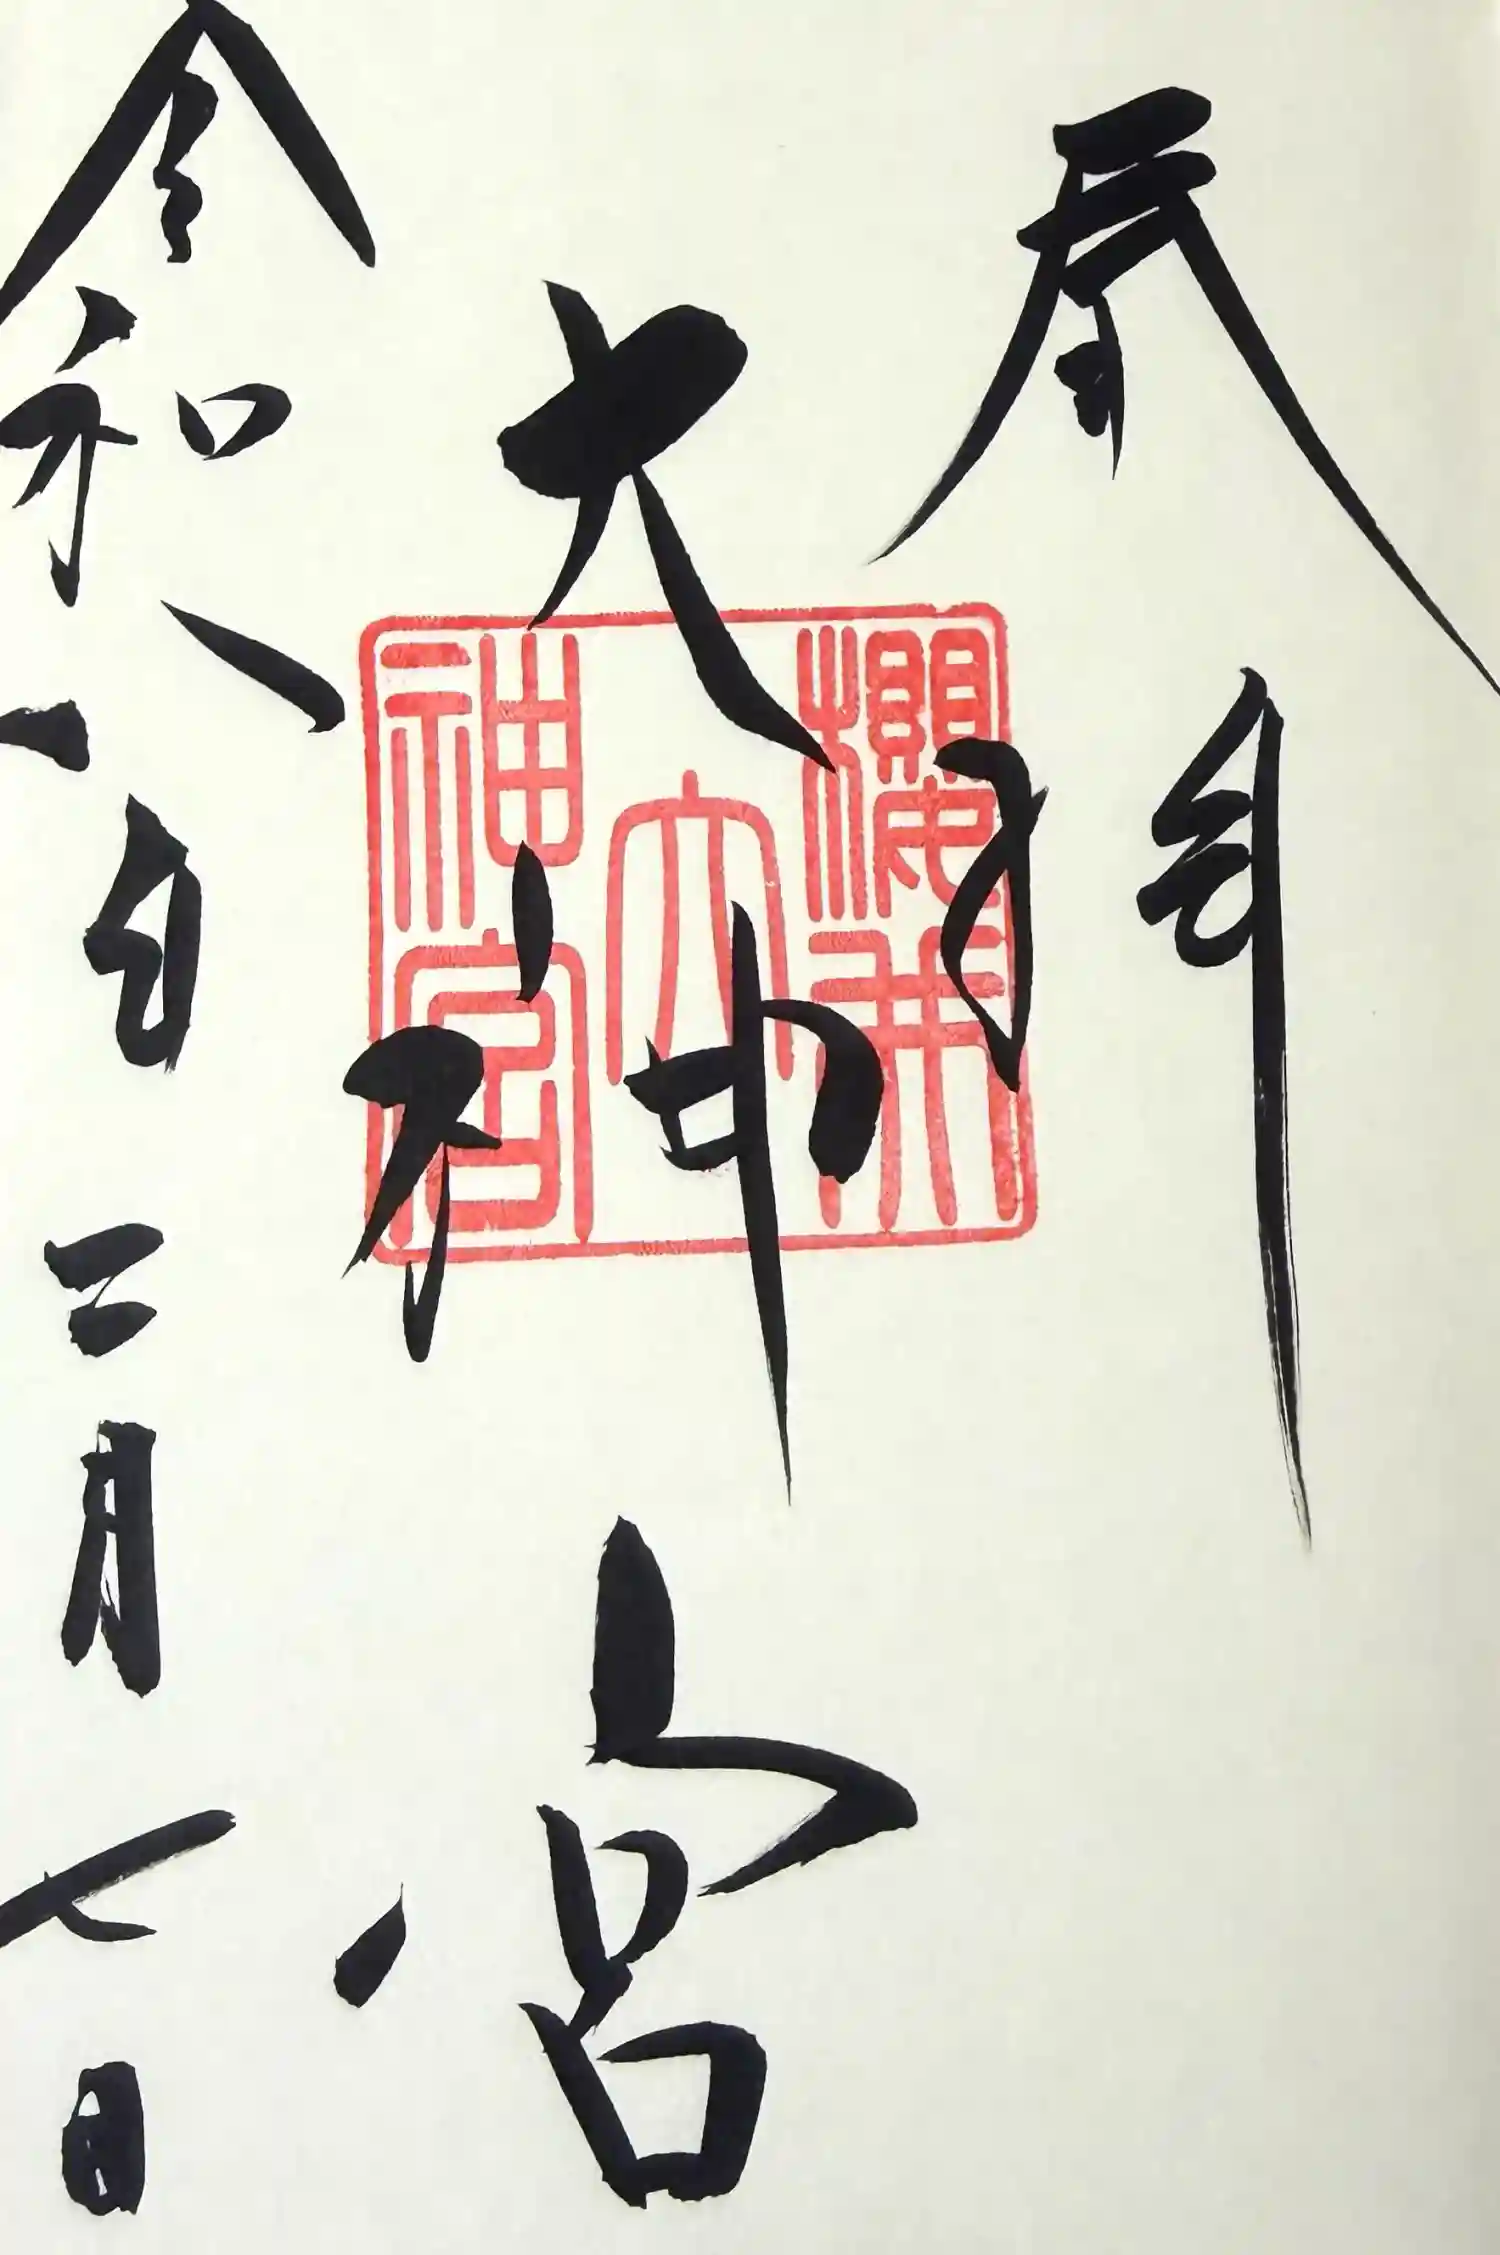 奉拝
大神宮
令和八年二月七日
櫻井
大
神宮